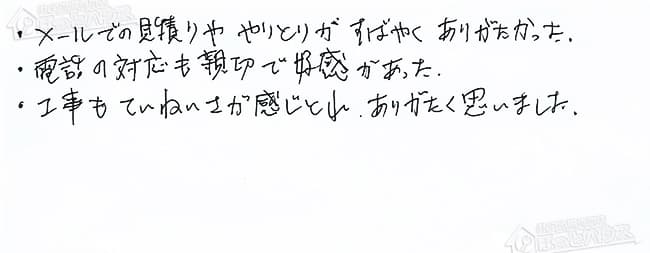 ・メールでの見積りや やりとりが すばやく ありがたかった.
・電話の対応も親切で好感があった.
・工事も ていねいさが感じとれ、ありがたく思いました.
ほっとハウス